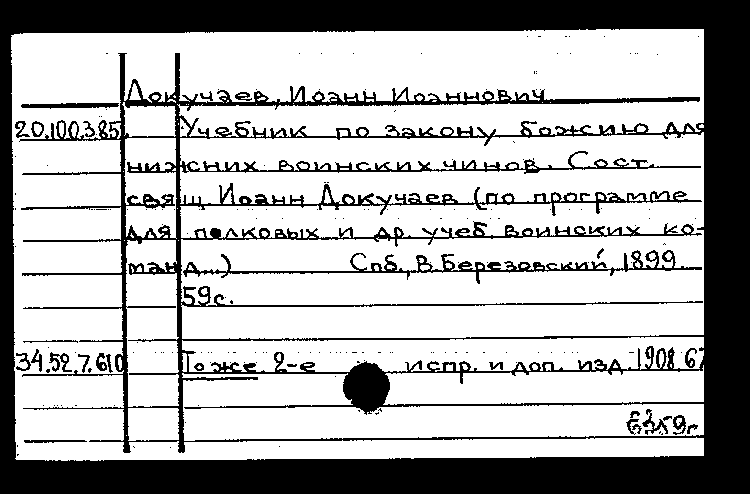 Докучаев, Иоанн Иоаннович
20.100.3.85. Учебник по закону божию для
нижних воинских чинов. Сост.
свящ. Иоанн Докучаев (по программе
для полковых и др. учеб. воинских ко-
манд...) Спб., В. Березовский, 1899.
59 с.
34.52.7.610 То же. 2-е испр. и доп. изд. 1908. 67